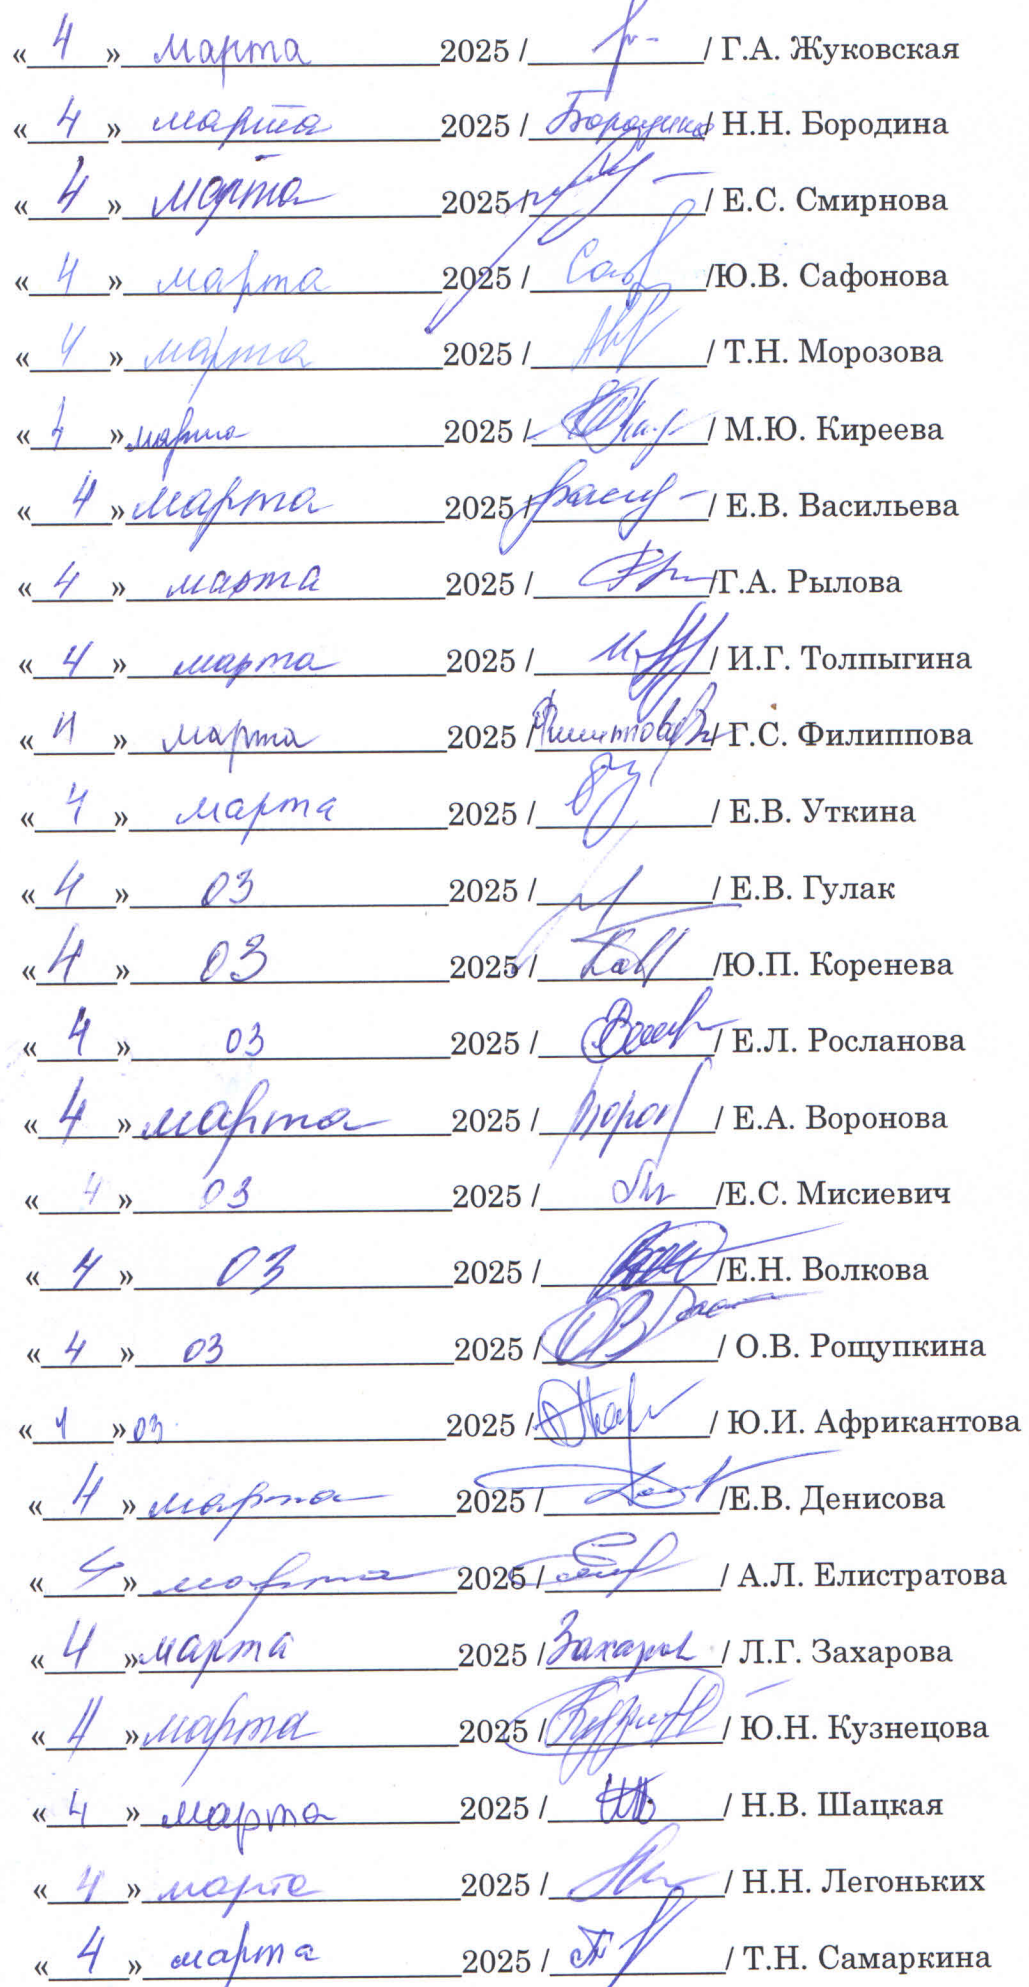 « 4 » марта 2025 / / Г.А. Жуковская
« 4 » марта 2025 / Бородина / Н.Н. Бородина
« 4 » марта 2025 / / Е.С. Смирнова
« 4 » марта 2025 / /Ю.В. Сафонова
« 4 » марта 2025 / / Т.Н. Морозова
« 4 » марта 2025 / / М.Ю. Киреева
« 4 » марта 2025 / / Е.В. Васильева
« 4 » марта 2025 / /Г.А. Рылова
« 4 » марта 2025 / / И.Г. Толпыгина
« 4 » марта 2025 / / Г.С. Филиппова
« 4 » марта 2025 / / Е.В. Уткина
« 4 » 03 2025 / / Е.В. Гулак
« 4 » 03 2025 / /Ю.П. Коренева
« 4 » 03 2025 / / Е.Л. Росланова
« 4 » марта 2025 / / Е.А. Воронова
« 4 » 03 2025 / /Е.С. Мисиевич
« 4 » 03 2025 / /Е.Н. Волкова
« 4 » 03 2025 / / О.В. Рощупкина
« 4 » 03 2025 / / Ю.И. Африкантова
« 4 » марта 2025 / /Е.В. Денисова
« 4 » марта 2025 / / А.Л. Елистратова
« 4 » марта 2025 / / Л.Г. Захарова
« 4 » марта 2025 / / Ю.Н. Кузнецова
« 4 » марта 2025 / / Н.В. Шацкая
« 4 » марта 2025 / / Н.Н. Легоньких
« 4 » марта 2025 / / Т.Н. Самаркина